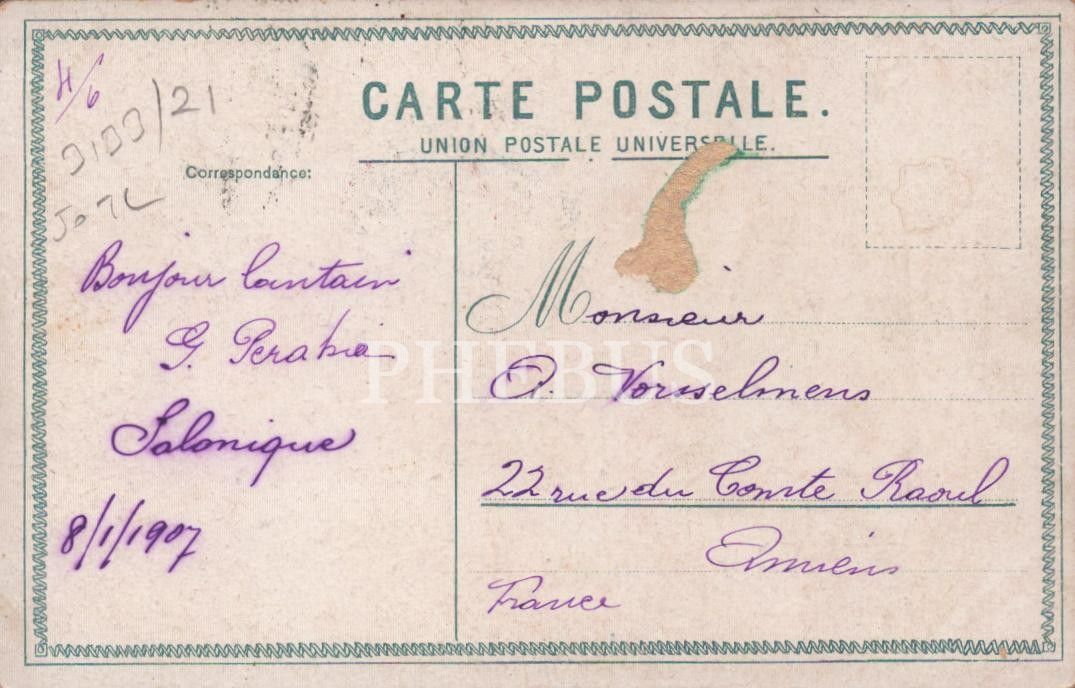 CARTE POSTALE.
UNION POSTALE UNIVERSELLE.
Correspondance:
4/6
3133/21
Bonjour lointain
G.
Salonique
8/1/1907
Monsieur
A. Vorsselmens
22 rue du Comte Raoul
Amiens
France
PHEBUS